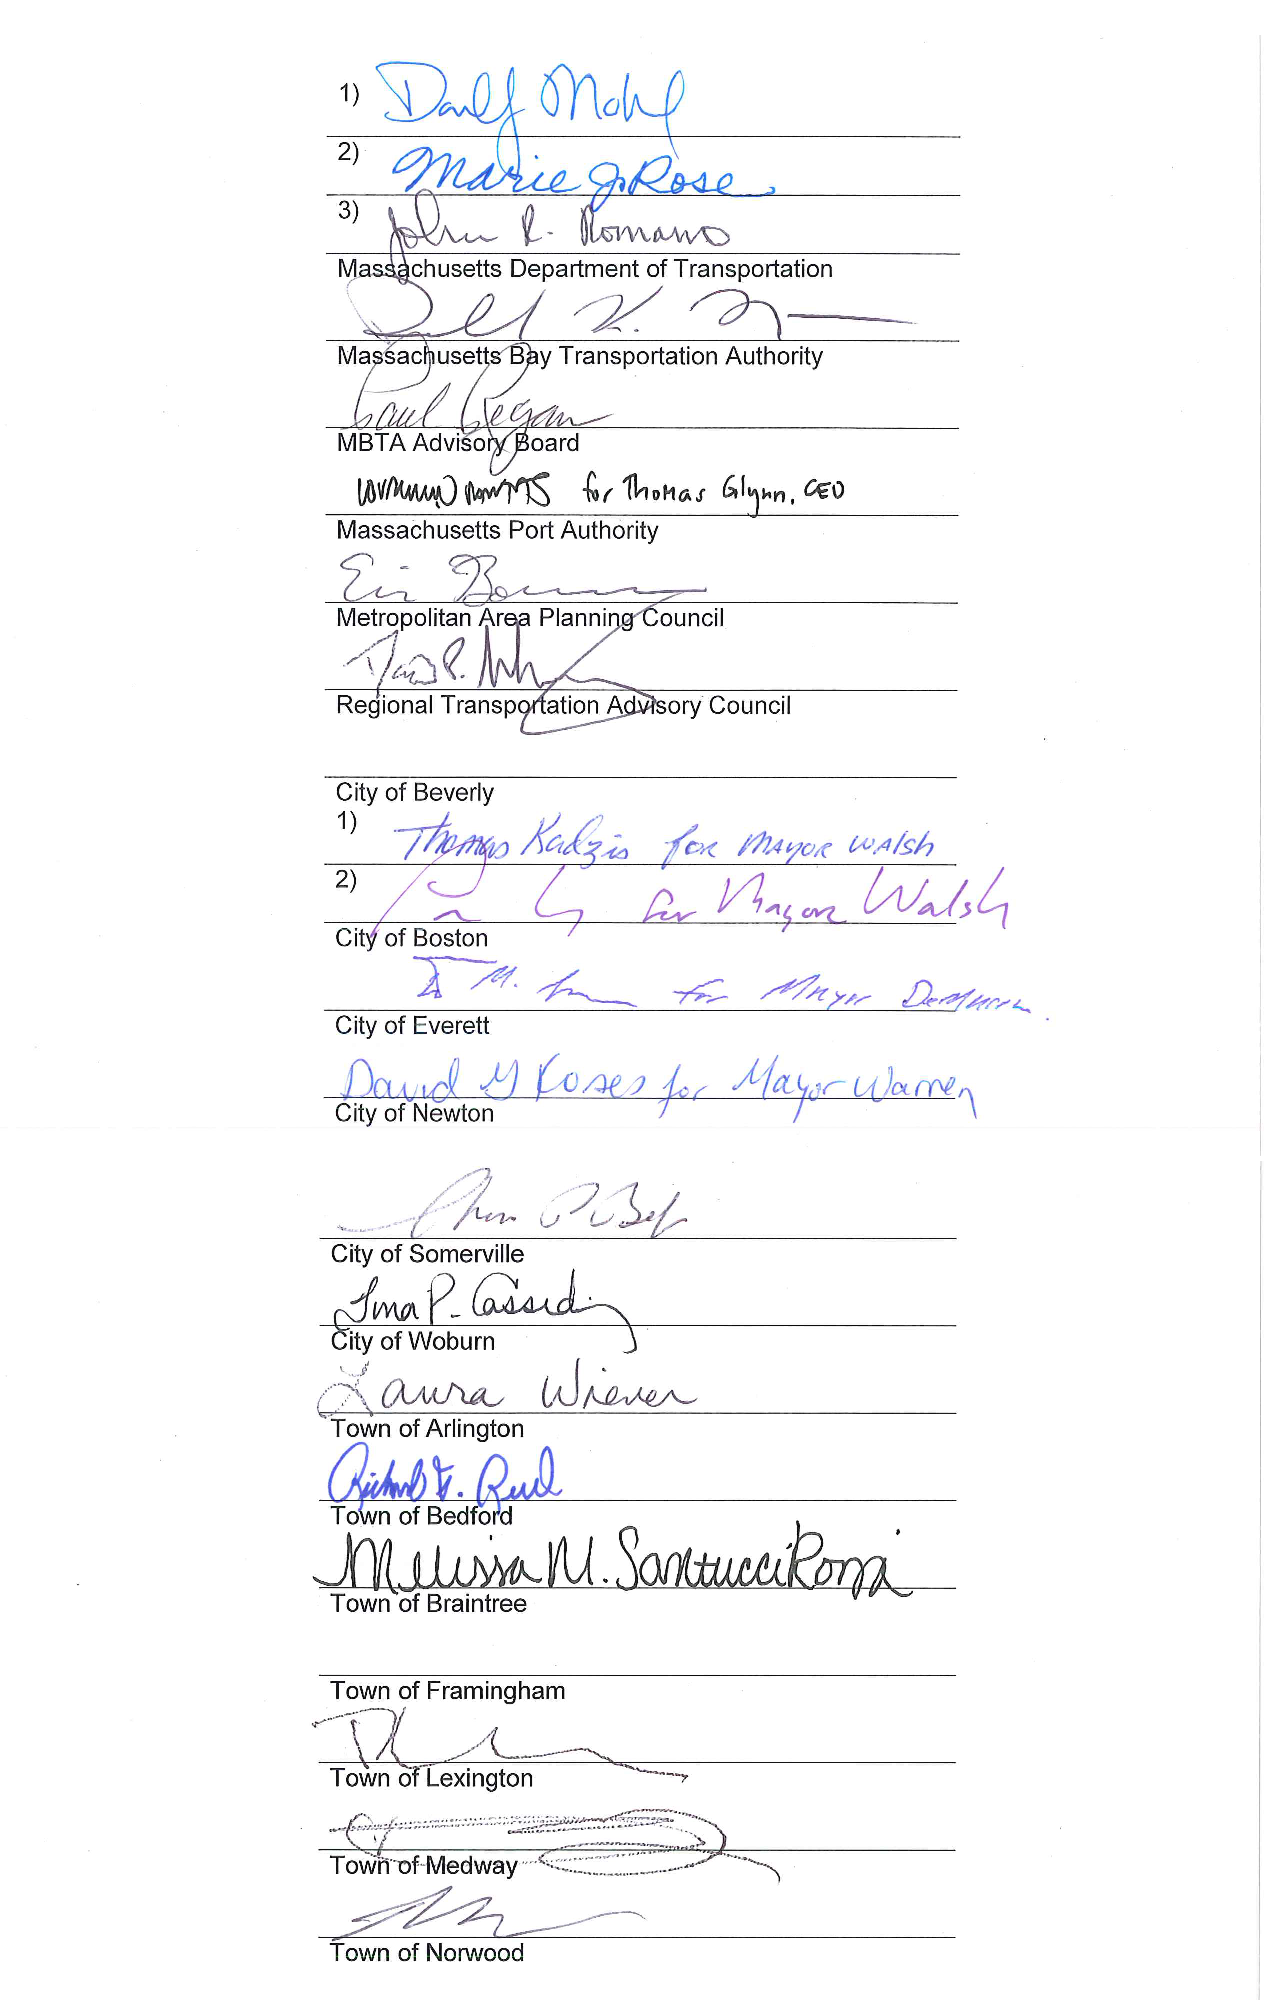 1) Mohl
2) Marie J. Rose
3) John R. Romano
Massachusetts Department of Transportation
K.
Massachusetts Bay Transportation Authority
Paul Regan
MBTA Advisory Board
for Thomas Glynn, CEO
Massachusetts Port Authority
Eric
Metropolitan Area Planning Council
Regional Transportation Advisory Council
City of Beverly
1) Thomas Kadzis for Mayor Walsh
2) for Mayor Walsh
City of Boston
M. for Mayor DeMaria
City of Everett
David G Koses for Mayor Warren
City of Newton
City of Somerville
Tina P. Cassidy
City of Woburn
Laura Wiener
Town of Arlington
Richard Reed
Town of Bedford
Melissa M. Santucci Rozzi
Town of Braintree
Town of Framingham
Town of Lexington
Town of Medway
Town of Norwood